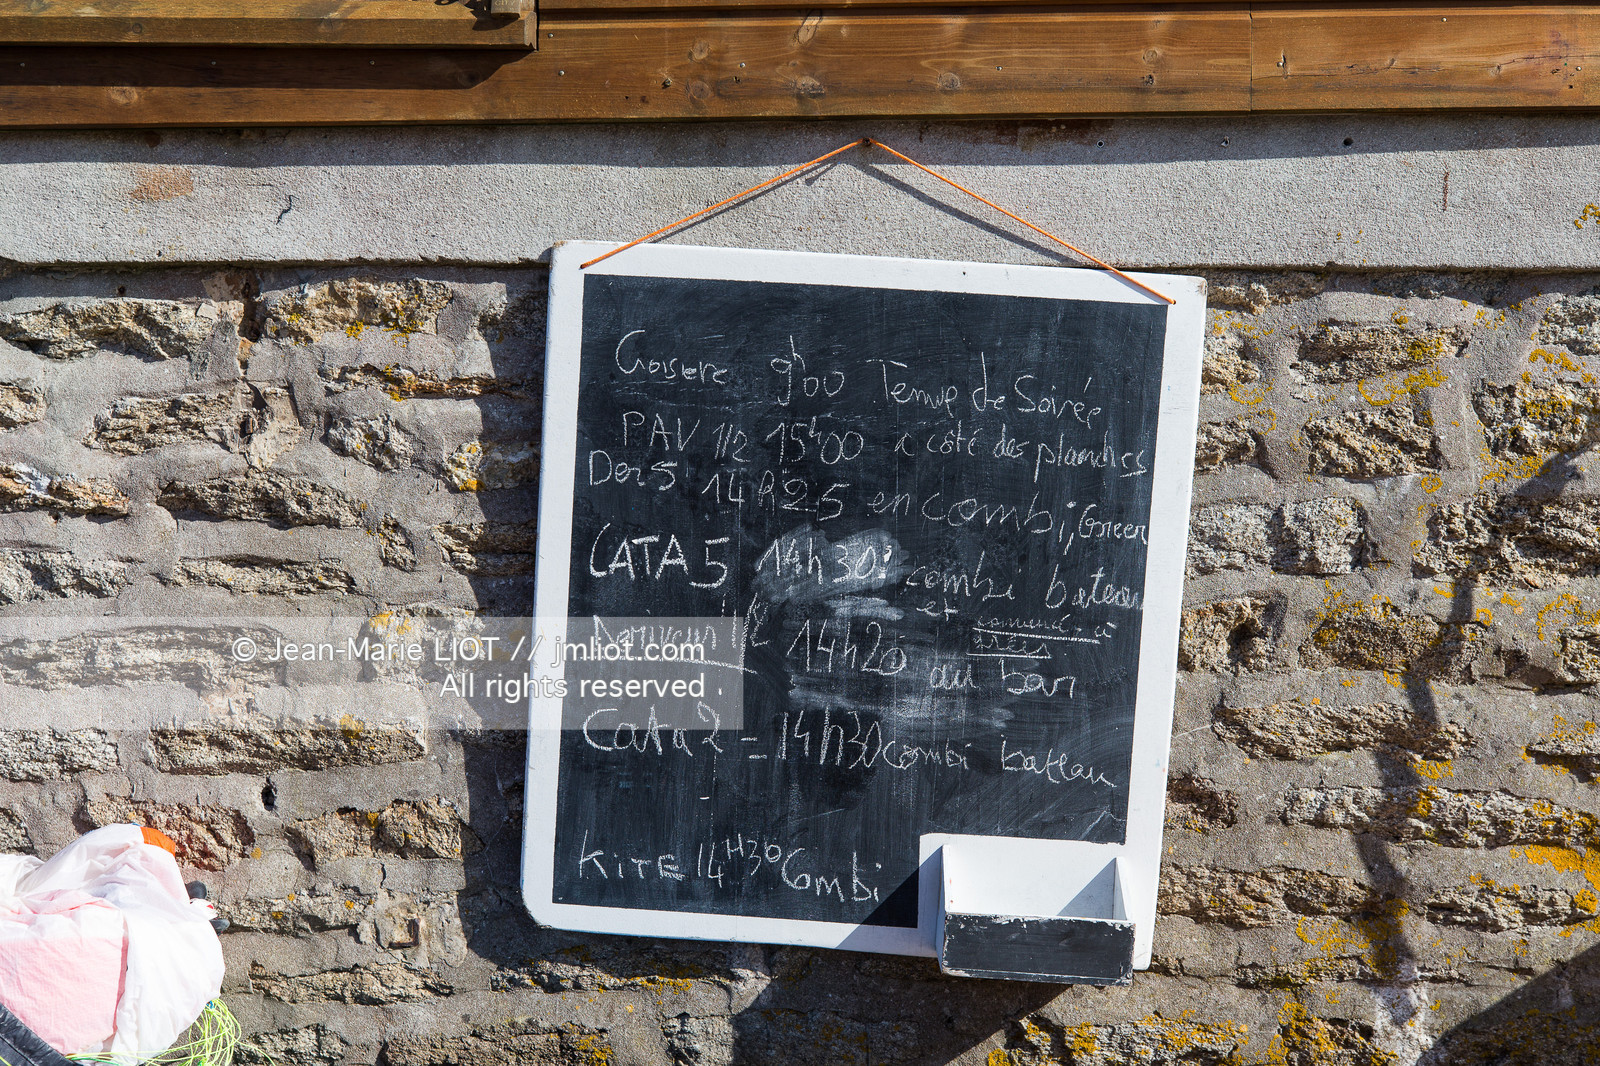 Croisère 9h00 Tenue de Soirée
PAV 1/2 15h00 à côté des planches
Der 5 14h25 en combi, Greer
CATA 5 14h30 : combi bateau
et commencé à
Dériveur 1/2 14h20 au bar
Cata 2 = 14h30 combi bateau
KITE 14H30 Combi
© Jean-Marie LIOT // jmliot.com
All rights reserved